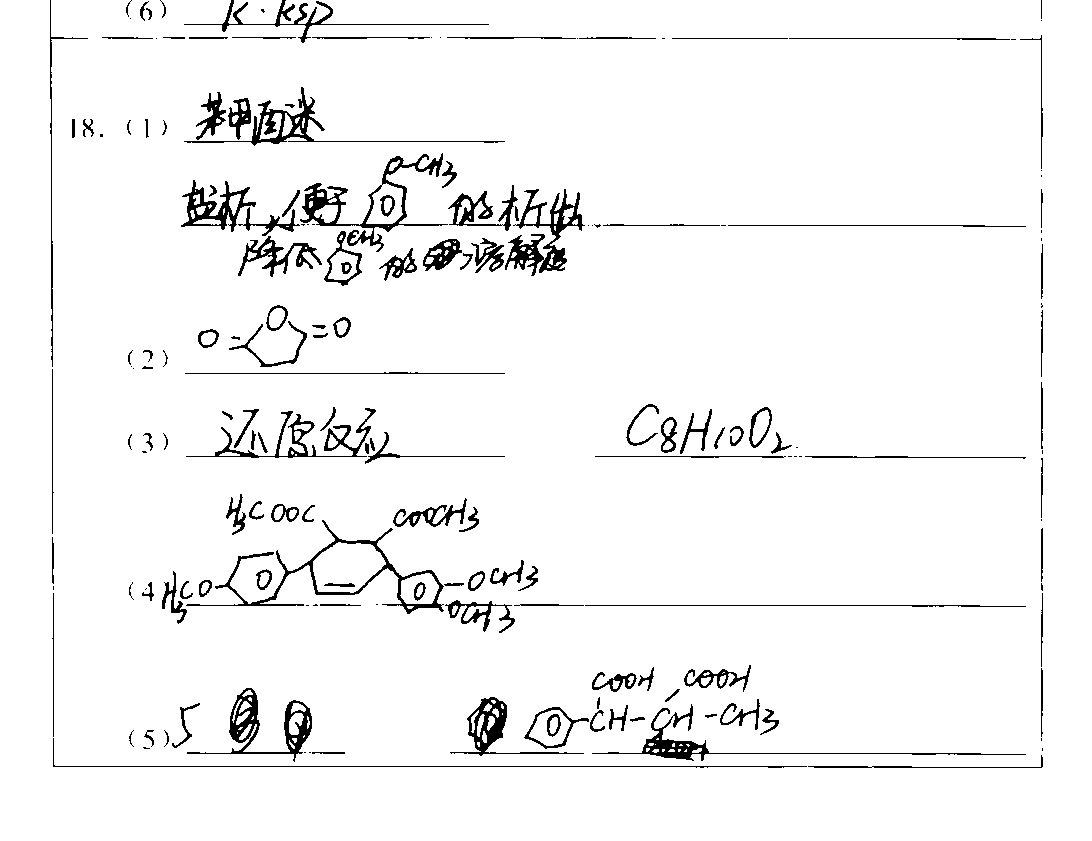 (6) K·Ksp
18. (1) 苯甲醚
盐析,便于 O-CH3 的析出
降低 OCH3 的溶解度
(2) O= O =O
(3) 还原反应 C8H10O2
H3COOC COOCH3
(4 H3CO- -OCH3
OCH3
COOH COOH
(5) 5 -CH-CH-CH3